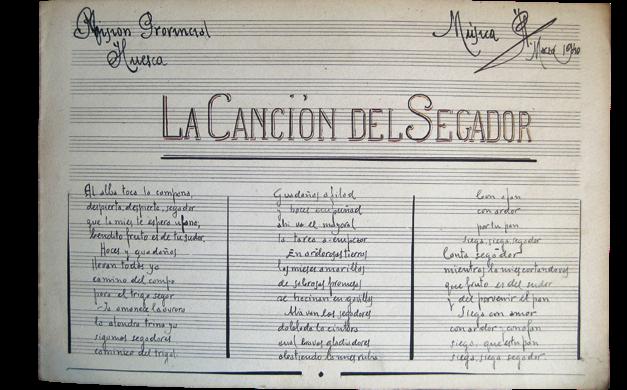 Misión Provincial
Huesca
Música
Marzo 1980
LA CANCIÓN DEL SEGADOR
Al alba toca la campana,
despierta, despierta, segador
que la mies te espera ufana,
bendito fruto es de tu sudor.
Hoces y guadañas
llevan todos ya
camino del campo
para el trigo segar
Ya amanece la aurora
la alondra trina ya
sigamos segadores
caminico del trigal.
Guadañas afilad
y hoces empuñad
ahí va el mayoral
la tarea a empezar
En ardorosas tierras
las mieses amarillas
de sabrosas promesas
se hacinan en gavillas
Allá van los segadores
doblada la cintura
cual bravos gladiadores
abatiendo la mies rubia
Con afan
con ardor
por tu pan
siega, siega, segador
Canta segador
mientras la mies cortando vas
que fruto es del sudor
y del porvenir el pan
Siega con amor
con ardor y con afan
siega, que es tu pan
siega, siega segador.